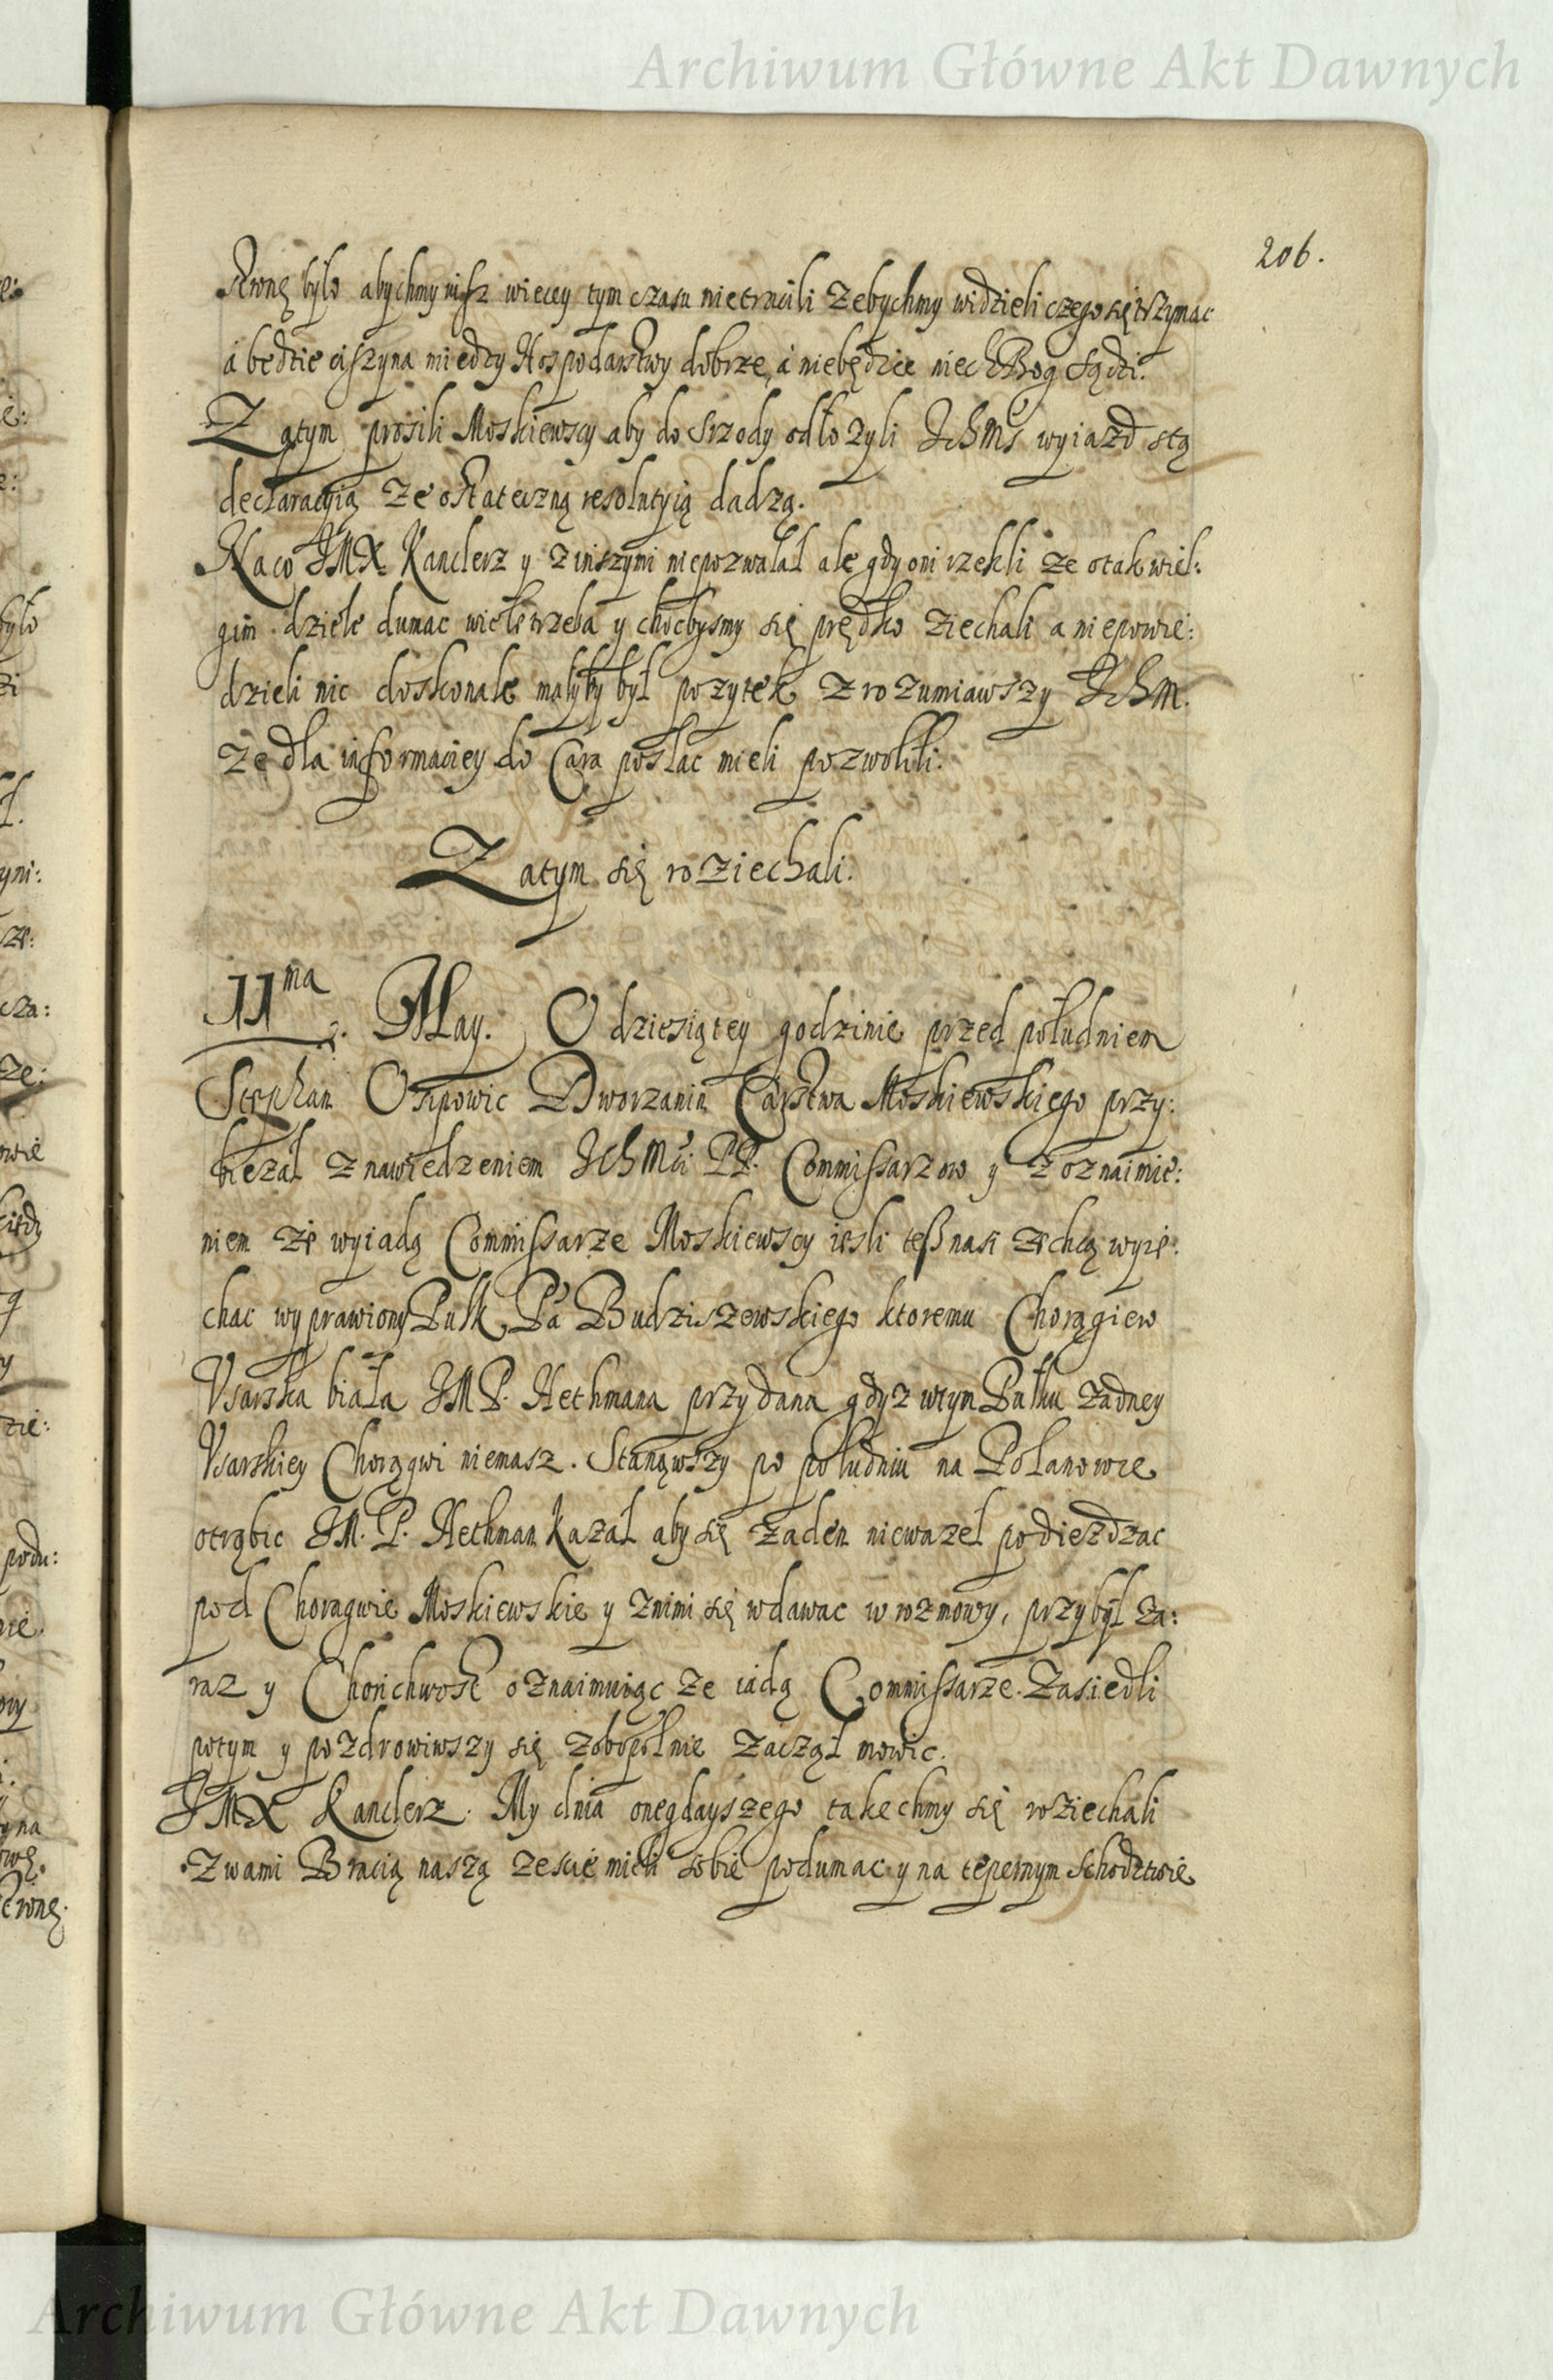 Archiwum Główne Akt Dawnych
206.
było abychmy nisz wiecey tym czasu nietracili zebychmy widzieli czego się trzymac
á bedzie ciszyna miedzy Hospodarstwy dobrze, á niebędzie niech Bog sądzi.
Zatym prosili Moskiewscy aby do Srzody odłozyli Ichms wyiazd stą
declaracyią ze ostateczną resolutyią dadzą.
Naco JMX Kanclerz y zinszymi niepozwalał ale gdy oni rzekli ze otak wiel:
gim dziele dumac wiele trzeba y chocbysmy się prędko ziechali a niepowie:
dzieli nic doskonale małyby był pozytek zrozumiawszy Ichm.
ze dla informaciey do Cara posłac mieli pozwolili.
Zatym się roziechali.
11ma May. O dziesiątey godzinie przed południem
Stephan Osipowic Dworzanin Carstwa Moskiewskiego przy:
biezał znawiedzeniem Ichmci PP. Commissarzow y zoznaimie:
niem ze wyiadą Commissarze Moskiewscy iesli tesz nasi zechcą wyie:
chac wyprawiony Pułk Pa Budziszewskiego ktoremu Chorągiew
Vsarska biała JMP. Hethmana przydana gdyz wtym Pułku zadney
Vsarskiey Chorągwi niemasz. Stanąwszy po południu na Polanowie
otrąbic JM. P. Hethman kazał aby się zaden niewazeł podiezdzac
pod Choragwie Moskiewskie y znimi się wdawac w rozmowy, przybył za:
raz y oznaimuiąc ze iadą Commissarze. Zasiedli
potym y pozdrowiwszy się zobopolnie zaczął mowic.
JMX Kanclerz. My dnia onegdayszego takechmy się roziechali
Zwami Bracią naszą zescie mieli sobie podumac y na tepernym schodztwie
Archiwum Główne Akt Dawnych